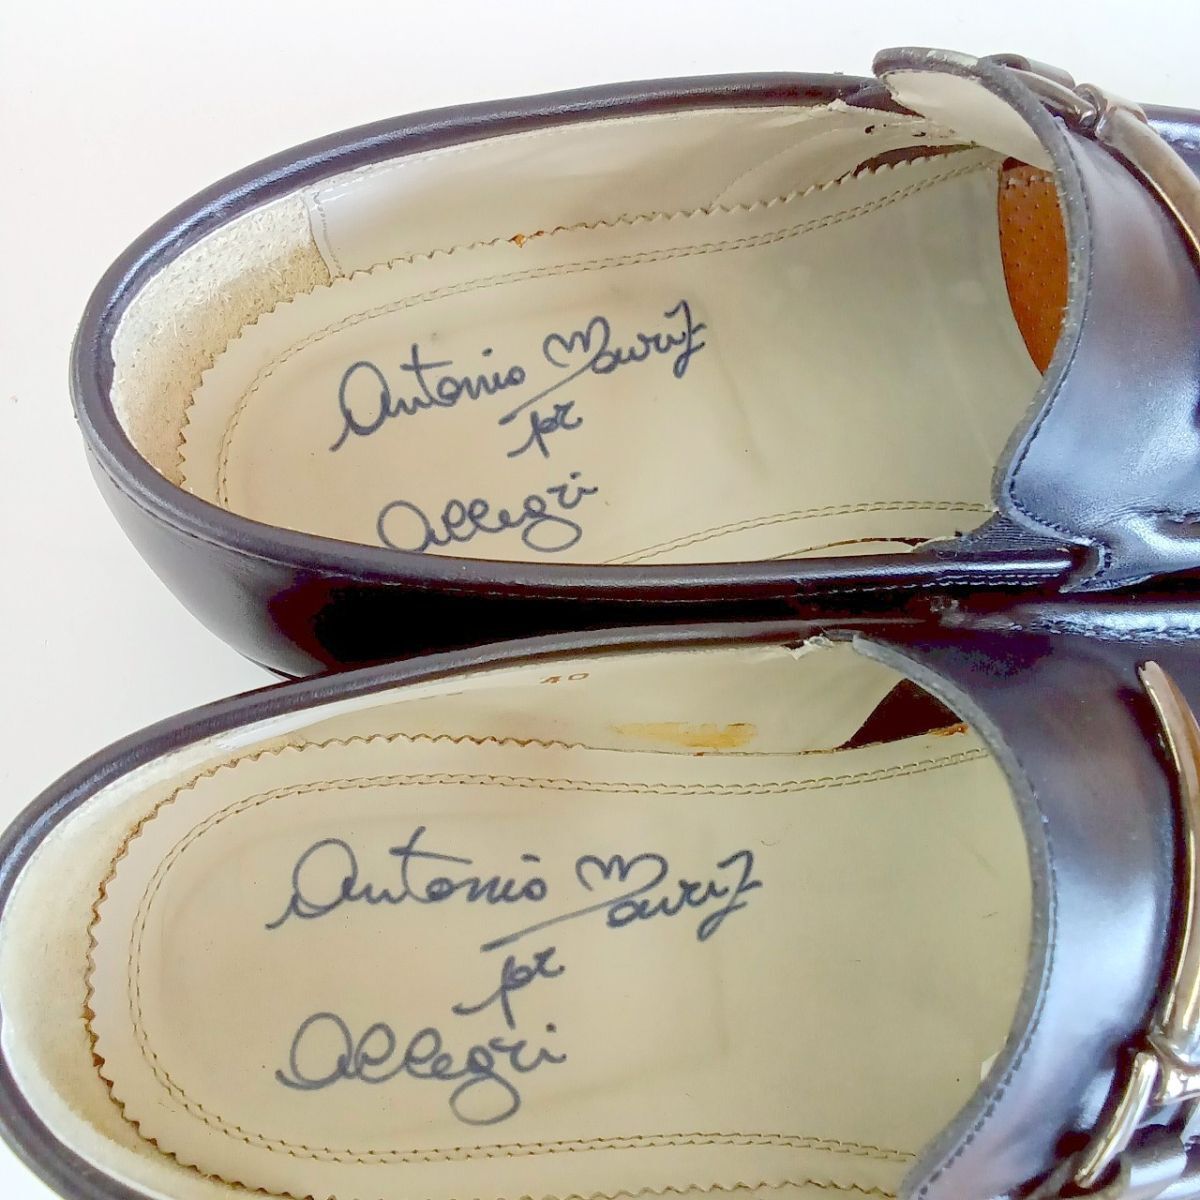 Antonio Mauriz
pr
Allegri
40
Antonio Mauriz
pr
Allegri